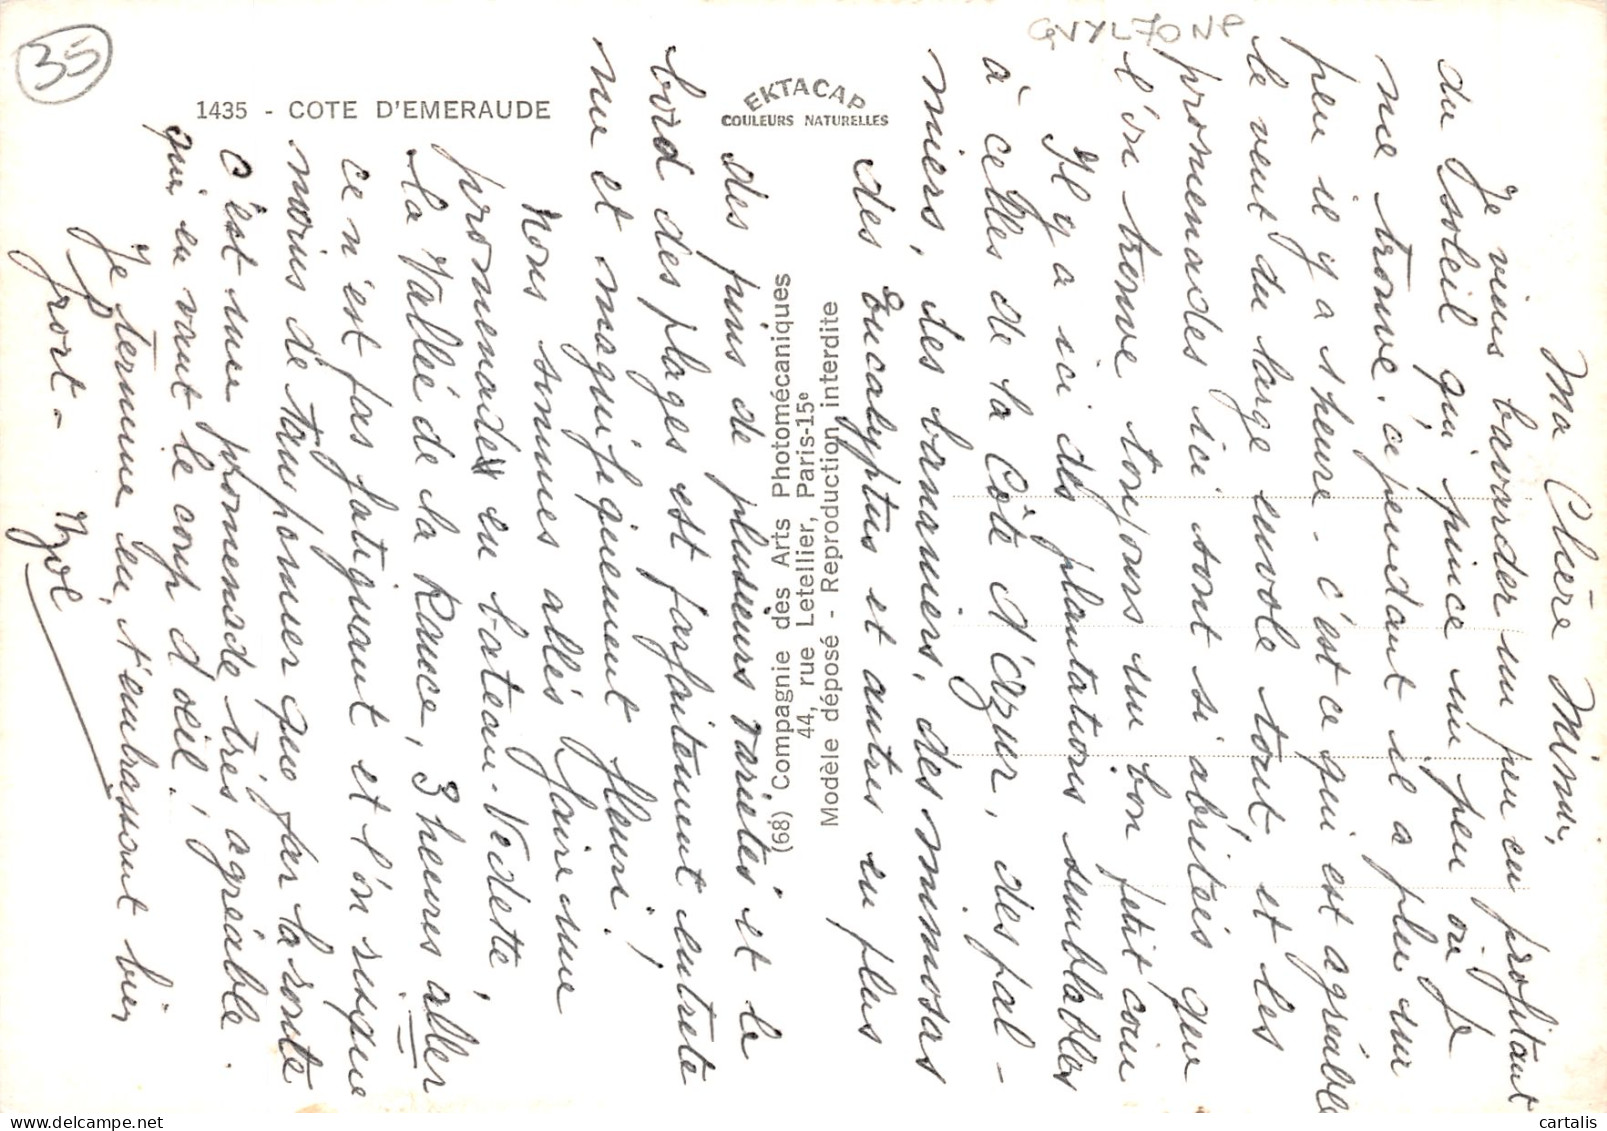 35
GVYL70NP
1435 - COTE D'EMERAUDE
EKTACAP
COULEURS NATURELLES
(68) Compagnie des Arts Photomécaniques
44, rue Letellier, Paris-15e
Modèle déposé - Reproduction interdite
Ma Chère Mimi,
Je viens bavarder un peu en profitant
du soleil qui pince un peu où je
me trouve, cependant il a plu un
peu il y a 1 heure - c'est ce qui est agréable
le vent du large envole tout, et les
promenades ici sont si abritées que
l'on trouve toujours un bon petit coin
Il y a ici des plantations semblables
à celles de la Côte d'Azur, des pal-
miers, des bananiers, des mimosas
des Eucalyptus et autres en plus
des pins de plusieurs variétés et le
bord des plages est parfaitement entrete
nu et magnifiquement fleuri.
Nous sommes allés faire une
promenade en bateau-Vedette,
la Vallée de la Rance, 3 heures aller
ce n'est pas fatiguant et l'on risque
moins de tamponner que par la route
c'est une promenade très agréable.
qui en vaut le coup d'oeil!
Je termine en t'embrassant bien
fort -
cartalis